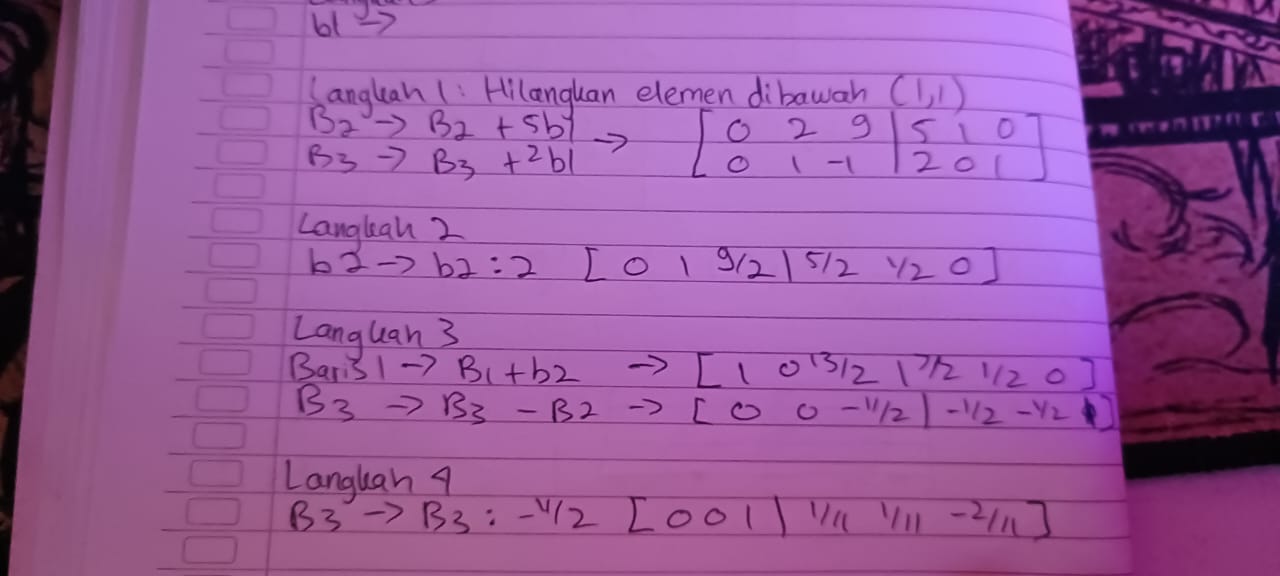 b1 →
Langkah 1: Hilangkan elemen dibawah (1,1)
B2 → B2 + 5b1 → [ 0 2 9 | 5 1 0 ]
B3 → B3 + 2b1 [ 0 1 -1 | 2 0 1 ]
Langkah 2
b2 → b2 : 2 [ 0 1 9/2 | 5/2 1/2 0 ]
Langkah 3
Baris 1 → B1 + b2 → [ 1 0 13/2 | 7/2 1/2 0 ]
B3 → B3 - B2 → [ 0 0 -11/2 | -1/2 -1/2 1 ]
Langkah 4
B3 → B3 : -11/2 [ 0 0 1 | 1/11 1/11 -2/11 ]